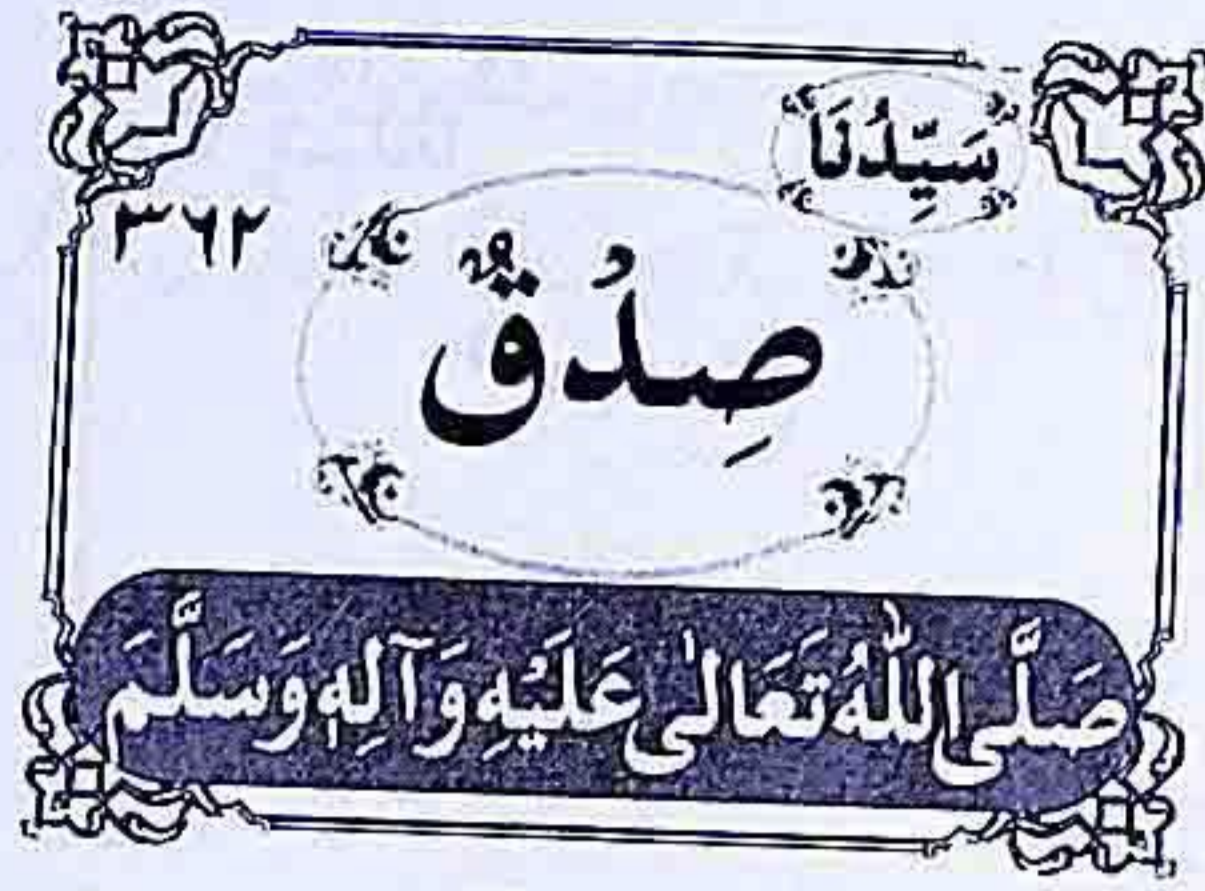 سَیِّدُنَا
۳۶۲
صِدْقٌ
صَلَّی اللّٰهُ تَعَالٰی عَلَیْهِ وَآلِهٖ وَسَلَّمَ